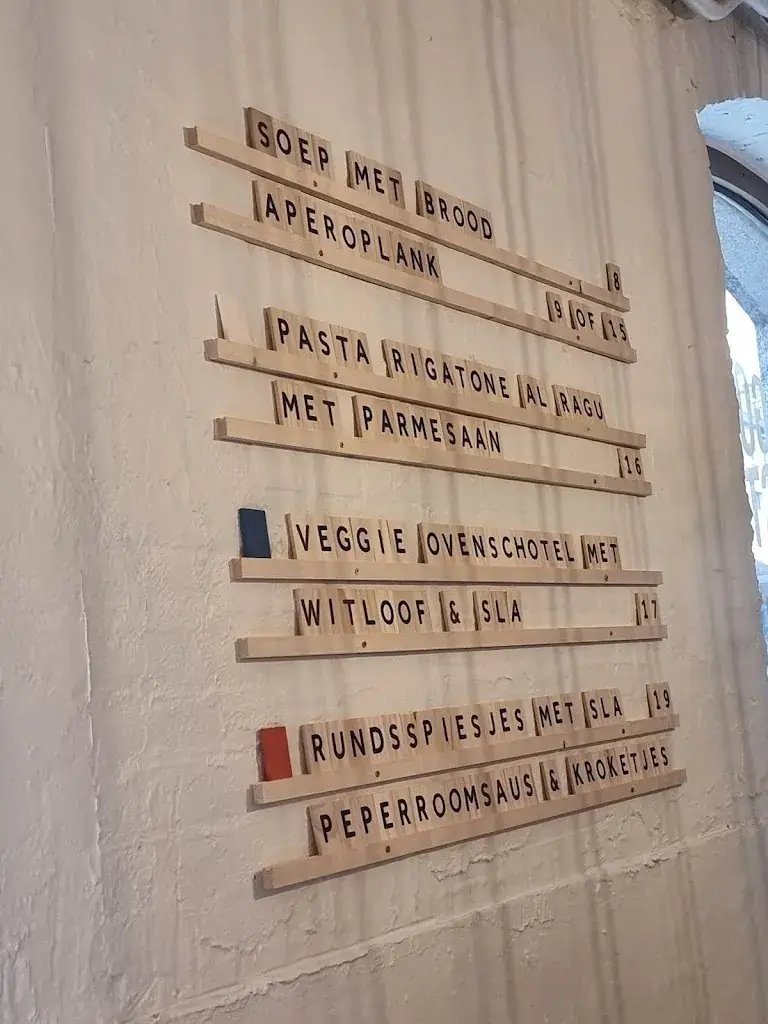 SOEP MET BROOD 8
APEROPLANK 9 OF 15
PASTA RIGATONE AL RAGU
MET PARMESAAN 16
VEGGIE OVENSCHOTEL MET
WITLOOF & SLA 17
RUNDSSPIESJES MET SLA 19
PEPERROOMSAUS & KROKETJES